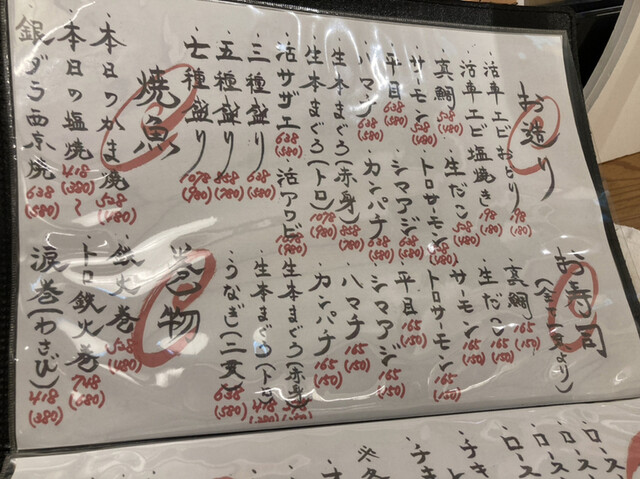 お造り
・活車エビおどり 198 (180)
・活車エビ塩焼き 198 (180)
・真鯛 528 (480)
・生だこ 528 (480)
・サーモン 528 (480)
・トロサーモン 638 (580)
・平目 638 (580)
・シマアジ 638 (580)
・ハマチ 638 (580)
・カンパチ 638 (580)
・生本まぐろ(赤身) 858 (780)
・生本まぐろ(トロ) 1078 (980)
・活サザエ 638 (580)
・活アワビ 1078 (980)
・三種盛り 638 (580)
・五種盛り 858 (780)
・七種盛り 1078 (980)
焼魚
・本日のかま焼 528 (480)
・本日の塩焼 418 (380)~
・銀ダラ西京焼 638 (580)
お寿司
(全て一貫より)
・真鯛 165 (150)
・生だこ 165 (150)
・サーモン 165 (150)
・トロサーモン 165 (150)
・平目 165 (150)
・シマアジ 165 (150)
・ハマチ 165 (150)
・カンパチ 165 (150)
・生本まぐろ(赤身)
・生本まぐろ(トロ) 418 (380)
・うなぎ(二貫) 638 (580)
巻物
・鉄火巻 528 (480)
・トロ鉄火巻 748 (680)
・涙巻(わさび) 418 (380)
・ロース
・ロース
・ロース
・チキ